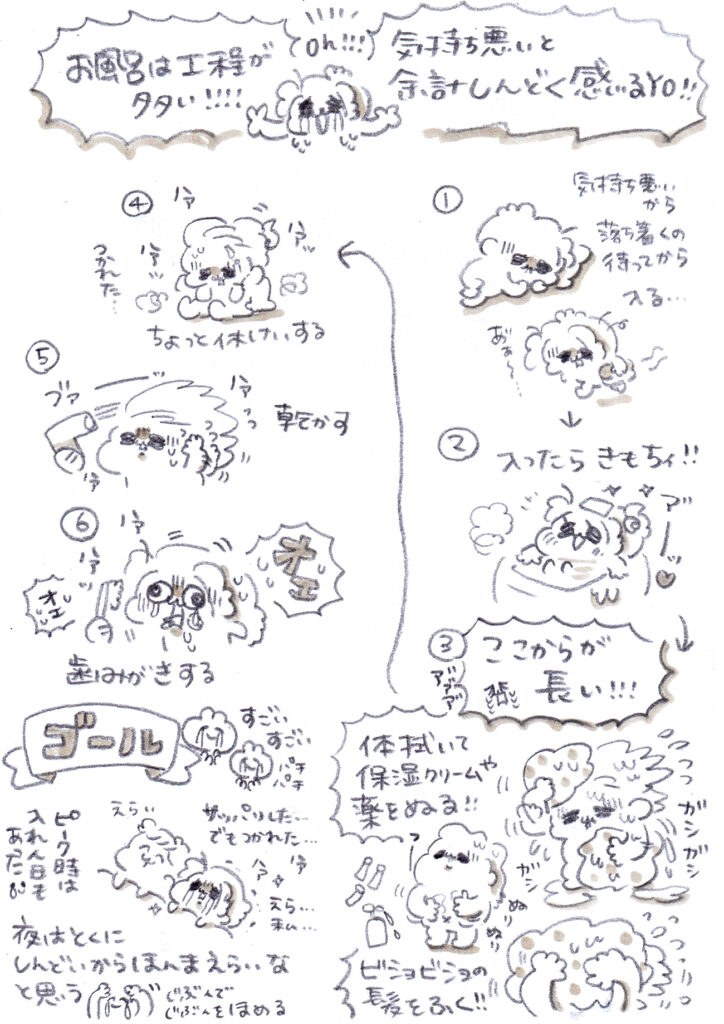 お風呂は工程が
多い!!!!
Oh!!!
気持ち悪いと
余計しんどく感じるYO!!
①
気持ち悪い
から
落ち着くの
待ってから
入る…
おぁ〜…
②
入ったら きもちィ!!
アーーッ♡
③
ここからが
長い!!!
アァァァ
体拭いて
保湿クリームや
薬をぬる!!
ガシガシ
ガシ
ぬり
ぬり
ビショビショの
髪をふく!!
④
ハァ
ハァッ
ハァッ
つかれた…
ちょっと休けいする
⑤
ブァ
ハァッ
ハァ
乾かす
⑥
ハァ
ハァッ
オェ
オェ
歯みがきする
ゴール
すごい
すごい
パチ
パチ
えらい
サッパリした…
でもつかれた…
ハァ
ハァ
えら…
私…
ピーク時は
入れん日も
あったが
夜はとくに
しんどいからほんまえらいな
と思う
じぶんで
じぶんをほめる